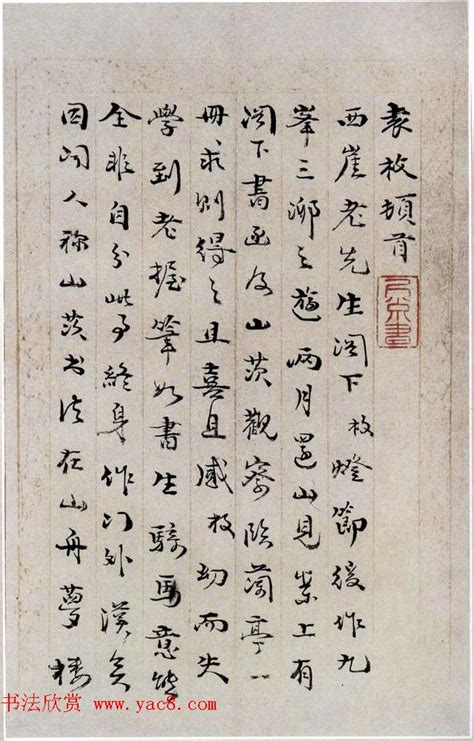 袁枚頓首
西崖老先生閣下枚燈節後作九
峯三泖之遊兩月還山見案上有
閣下書函及山茨觀察臨蘭亭一
冊求則得之且喜且感枚幼而失
學到老握筆如書生騎馬意態
全非自分此事終身作門外漢矣
因聞人稱山茨書法在山舟夢樓
书法欣赏 www.yac8.com